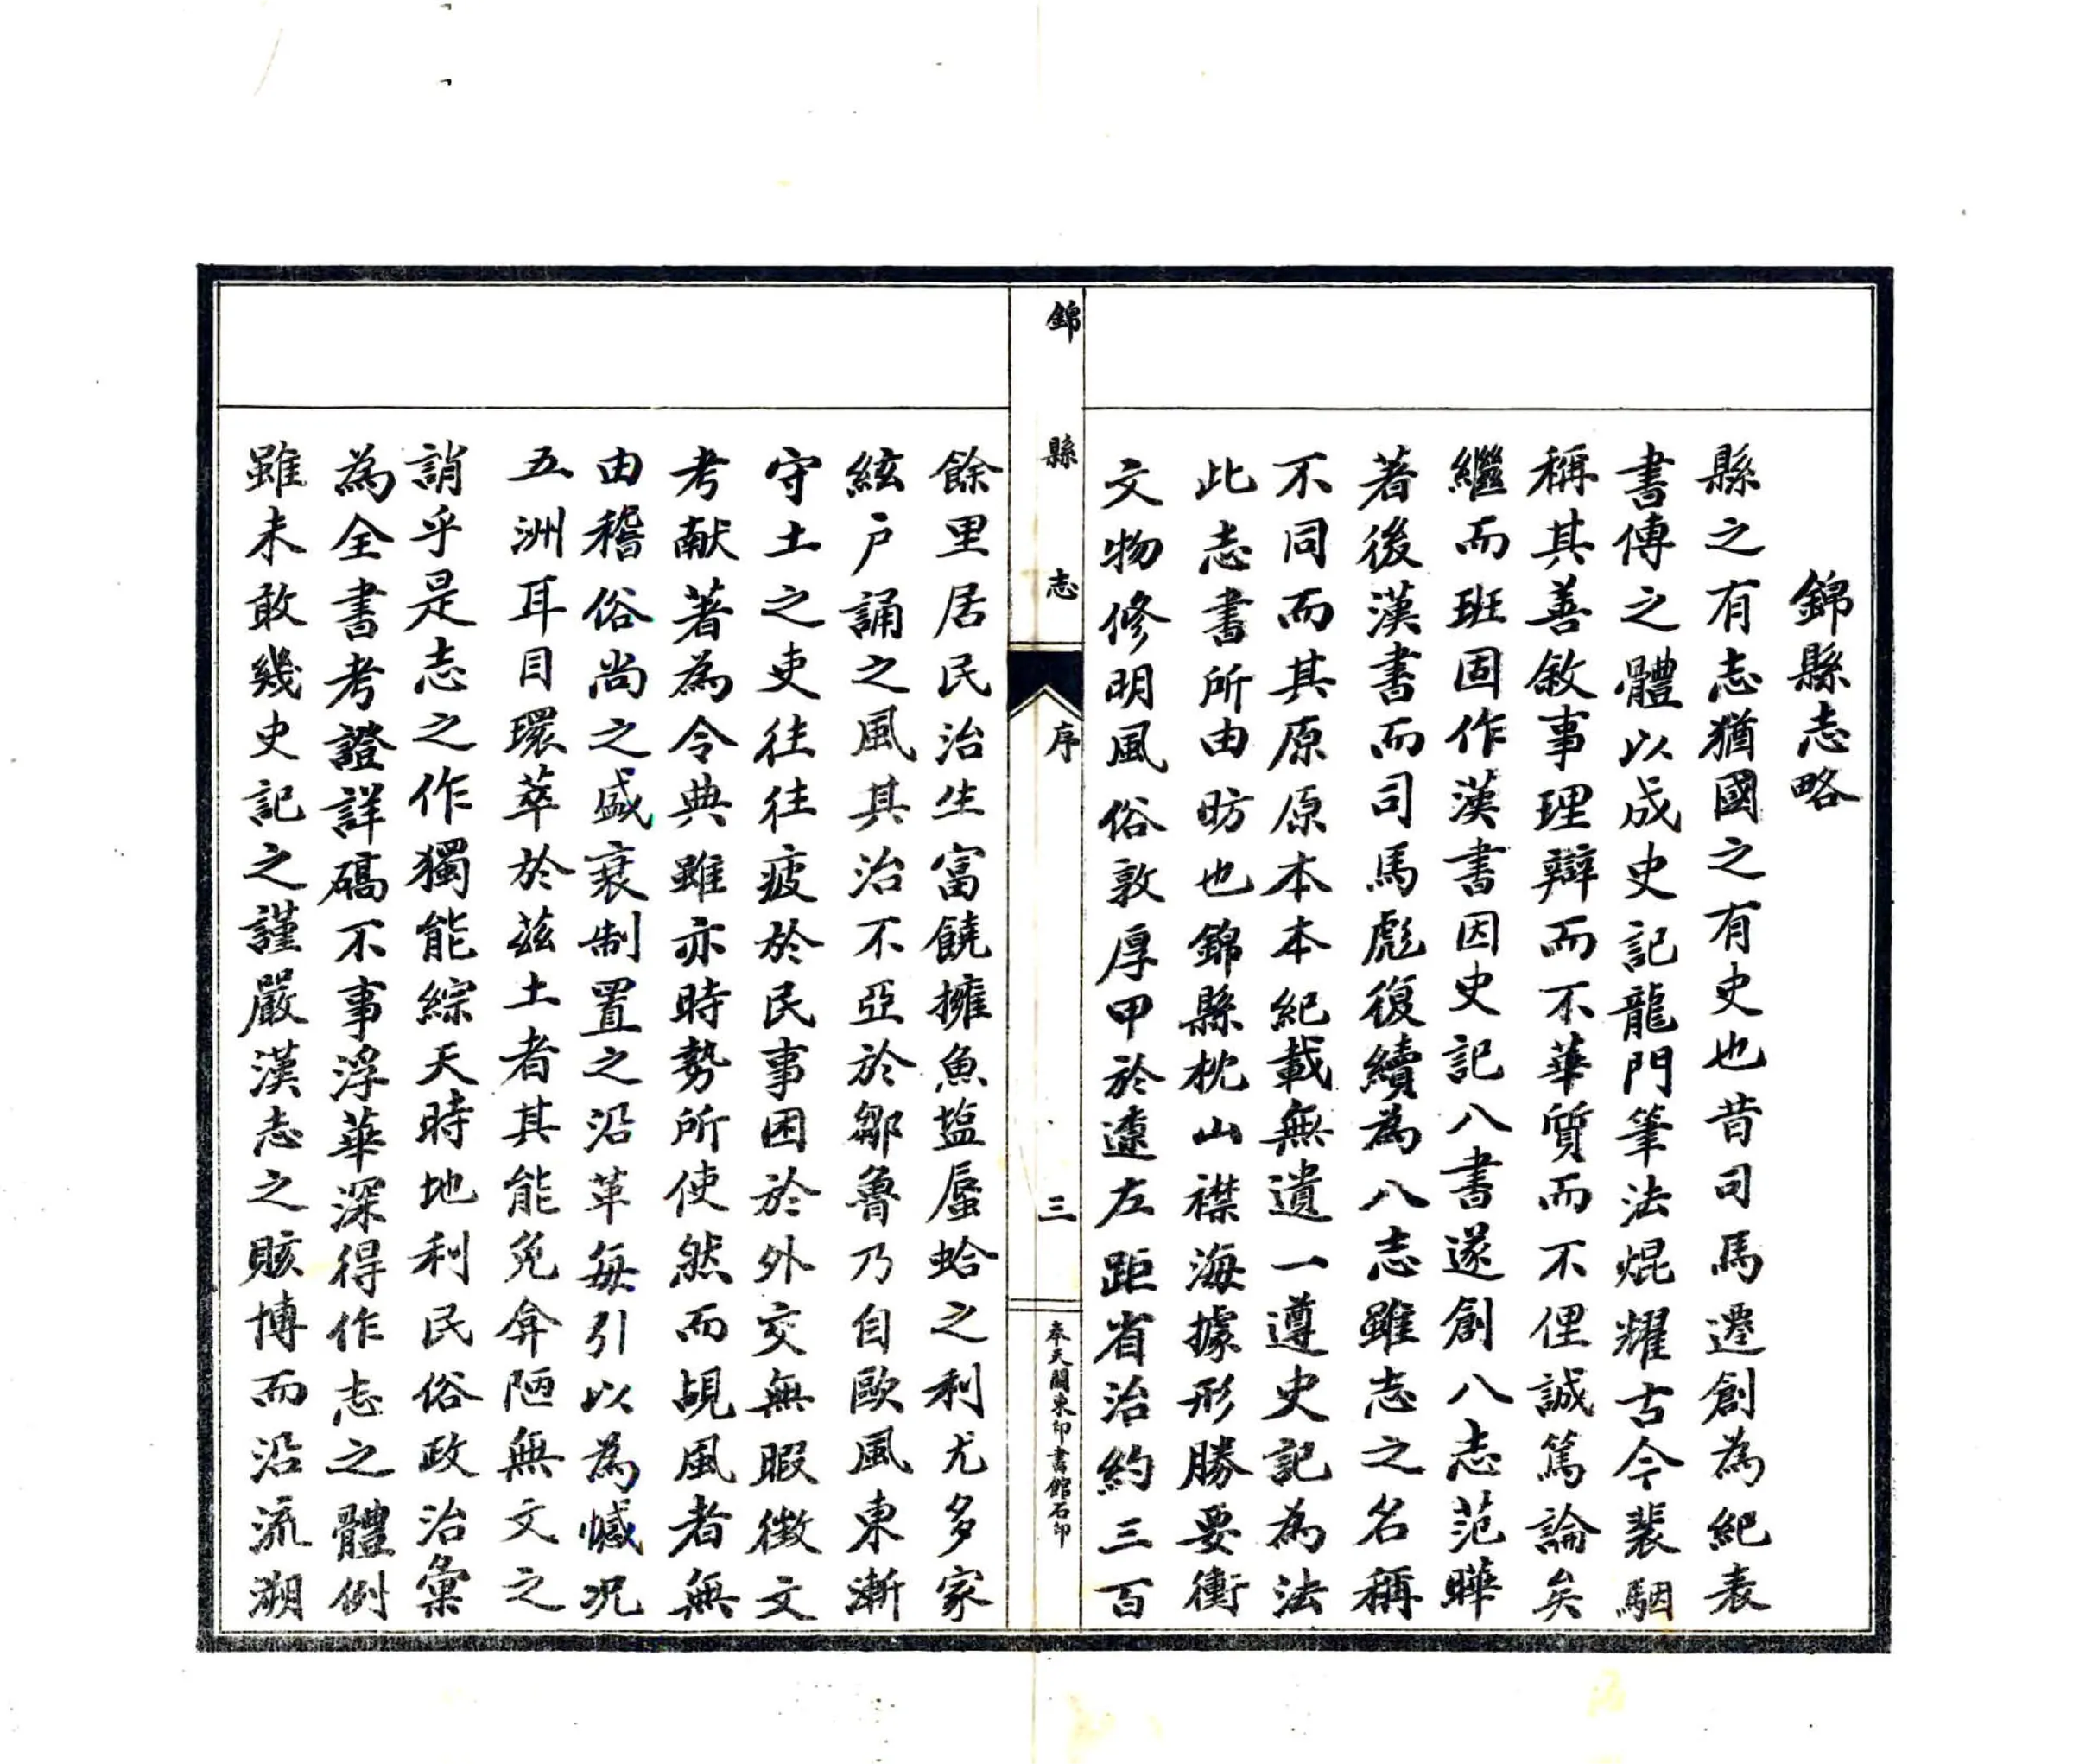 錦縣志略
縣之有志猶國之有史也昔司馬遷創為紀表
書傳之體以成史記龍門筆法焜耀古今裴駰
稱其善敘事理辯而不華質而不俚誠篤論矣
繼而班固作漢書因史記八書遂創八志范曄
著後漢書而司馬彪復續為八志雖志之名稱
不同而其原原本本紀載無遺一遵史記為法
此志書所由昉也錦縣枕山襟海據形勝要衝
文物修明風俗敦厚甲於遼左距省治約三百
錦縣志
序
三
奉天關東印書館石印
餘里居民治生富饒擁魚塩蜃蛤之利尤多家
絃户誦之風其治不亞於鄒魯乃自歐風東漸
守土之吏往往疲於民事困於外交無暇徵文
考献著為令典雖亦時勢所使然而覘風者無
由稽俗尚之盛衰制置之沿革每引以為憾况
五洲耳目環萃於茲土者其能免弇陋無文之
誚乎是志之作獨能綜天時地利民俗政治彙
為全書考證詳碻不事浮華深得作志之體例
雖未敢幾史記之謹嚴漢志之賅博而沿流溯